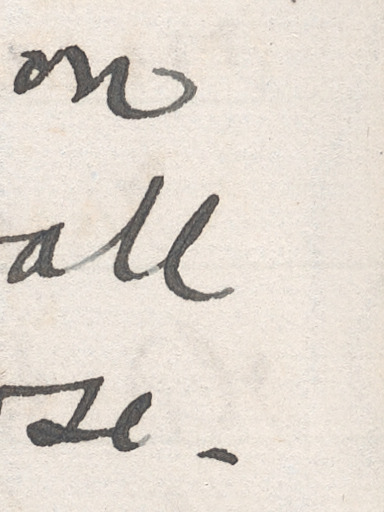 on
all
se.